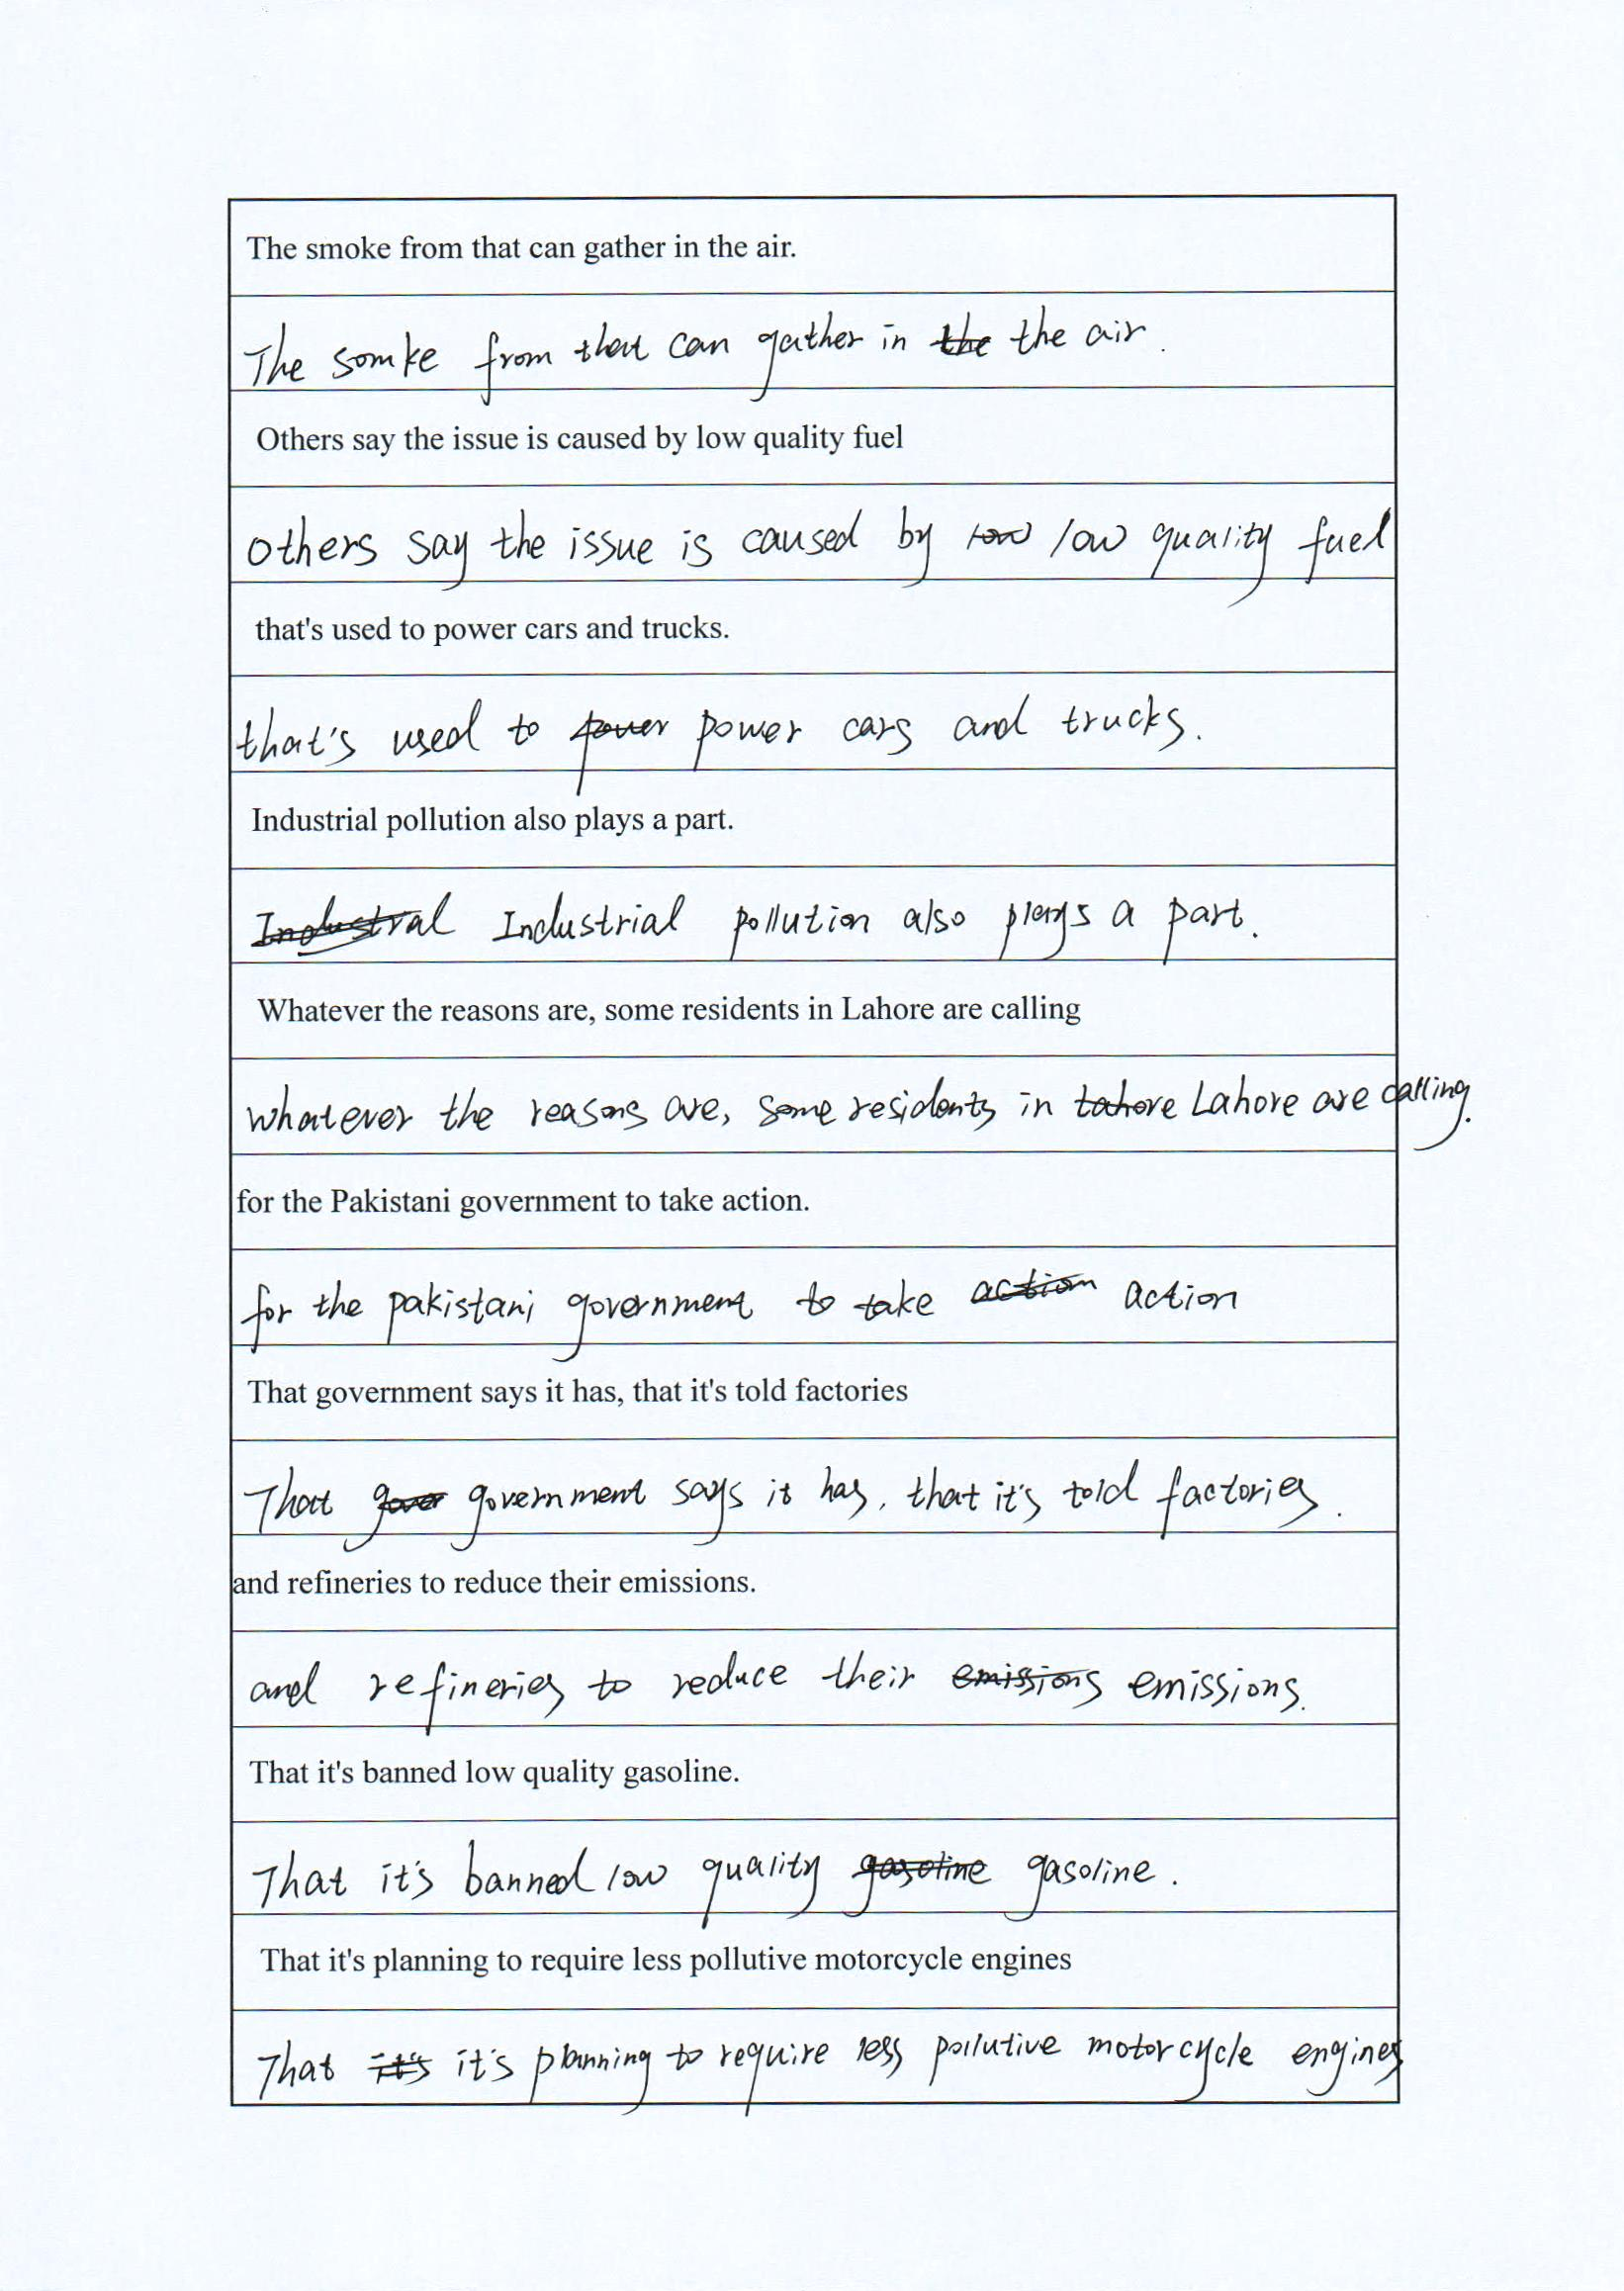 The smoke from that can gather in the air.
The somke from that can gather in the the air.
Others say the issue is caused by low quality fuel
others say the issue is caused by low low quality fuel
that's used to power cars and trucks.
that's used to power power cars and trucks.
Industrial pollution also plays a part.
Industral Industrial pollution also plays a part.
Whatever the reasons are, some residents in Lahore are calling
whatever the reasons are, some residents in Lahore Lahore are calling.
for the Pakistani government to take action.
for the pakistani government to take action action
That government says it has, that it's told factories
That gover government says it has, that it's told factories.
and refineries to reduce their emissions.
and refineries to reduce their emissions emissions.
That it's banned low quality gasoline.
That it's banned low quality gasoline gasoline.
That it's planning to require less pollutive motorcycle engines
That it's it's planning to require less pollutive motorcycle engines